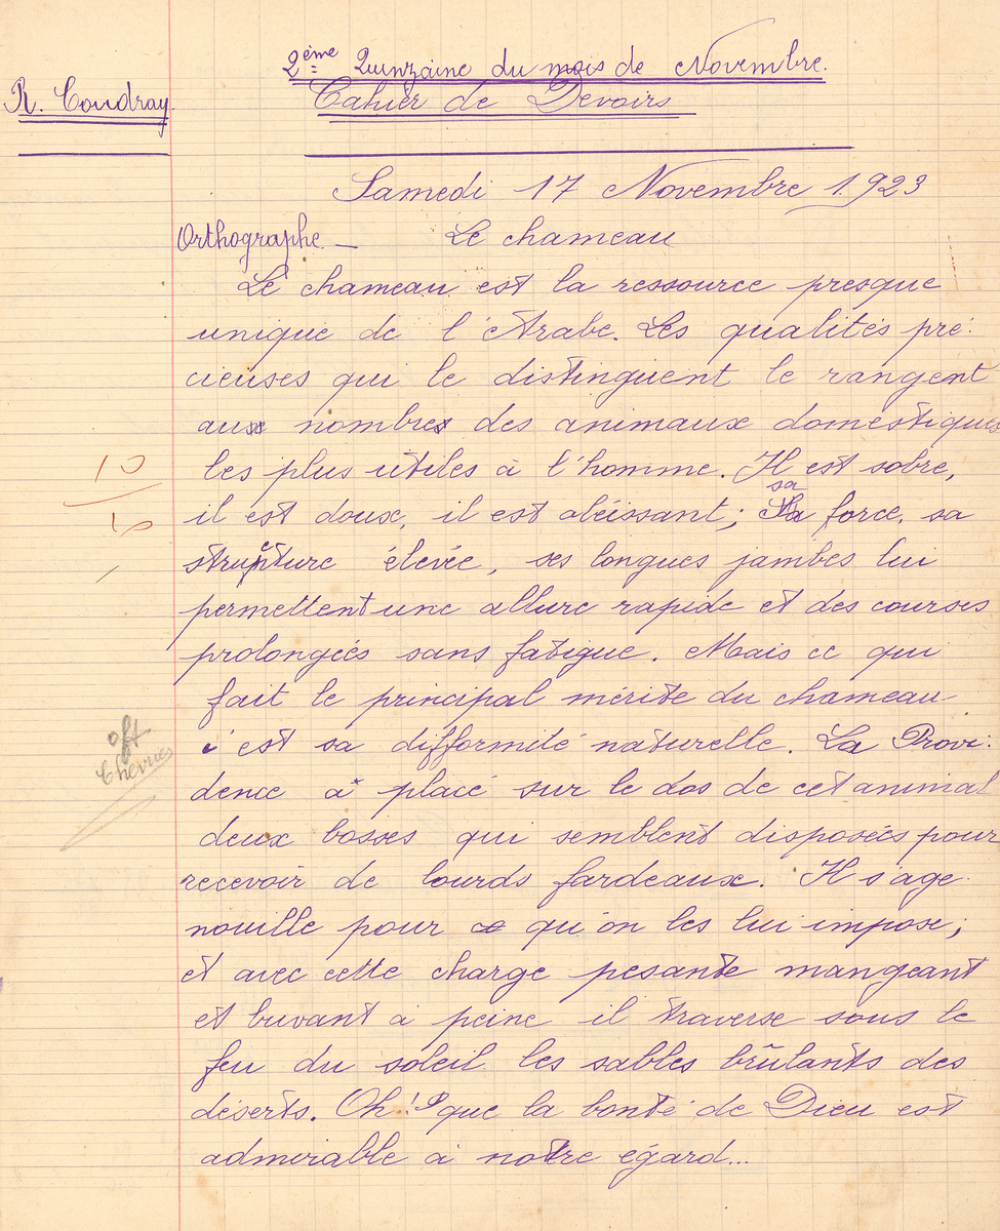 2ème Quinzaine du mois de Novembre.
R. Coudray.
Cahier de Devoirs
Samedi 17 Novembre 1923
Orthographe. — Le chameau
Le chameau est la ressource presque
unique de l'Arabe. Les qualités pré-
cieuses qui le distinguent le rangent
au nombre des animaux domestiques
les plus utiles à l'homme. Il est sobre,
il est doux, il est obéissant ; sa force, sa
structure élevée, ses longues jambes lui
permettent une allure rapide et des courses
prolongées sans fatigue. Mais ce qui
fait le principal mérite du chameau
c'est sa difformité naturelle. La Provi-
dence a placé sur le dos de cet animal
deux bosses qui semblent disposées pour
recevoir de lourds fardeaux. Il s'age-
nouille pour qu'on les lui impose ;
et avec cette charge pesante mangeant
et buvant à peine il traverse sous le
feu du soleil les sables brûlants des
déserts. Oh ! que la bonté de Dieu est
admirable à notre égard...
10
10